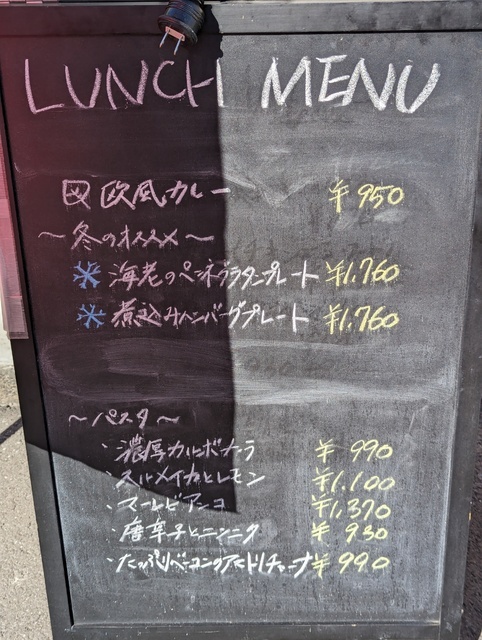 LUNCH MENU
欧風カレー ¥950
〜冬のオススメ〜
海老のペンネグラタンプレート ¥1,760
煮込みハンバーグプレート ¥1,760
〜パスタ〜
・濃厚カルボナーラ ¥990
・スルメイカとレモン ¥1,100
・マーレビアンコ ¥1,370
・唐辛子とニンニク ¥930
・たっぷりベーコンのアマトリチャーナ ¥990